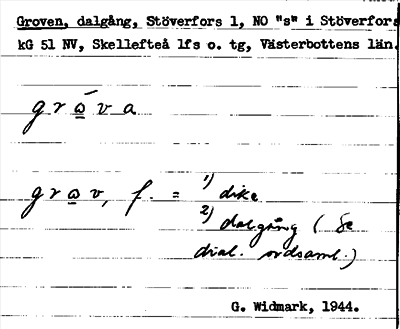 Groven, dalgång, Stöverfors 1, NO "s" i Stöverfors
kG 51 NV, Skellefteå lfs o. tg, Västerbottens län.
grώ̱va
grω̱v, f. = 1) dike
2) dalgång (se
dial. ordsaml.)
G. Widmark, 1944.